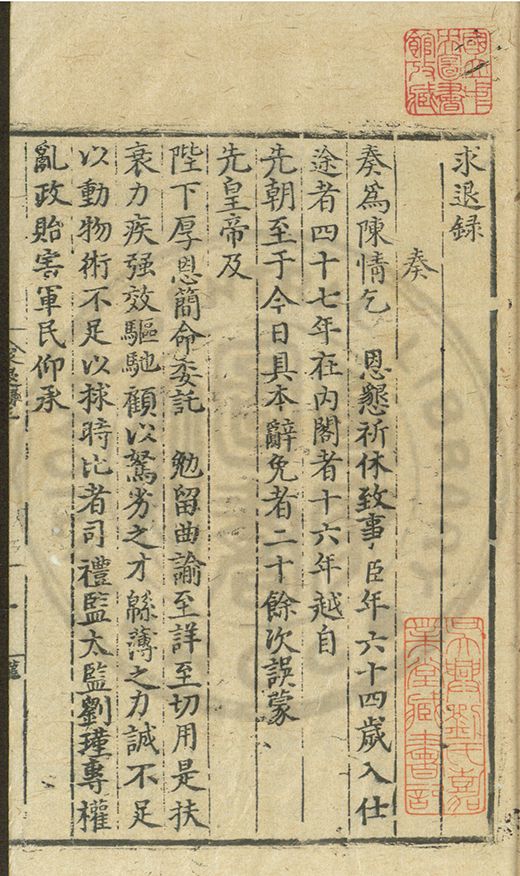 求退録
奏
奏為陳情乞 恩懇祈休致事臣年六十四歲入仕
途者四十七年在內閣者十六年越自
先朝至于今日具本辭免者二十餘次誤蒙
先皇帝及
陛下厚恩簡命委託 勉留曲諭至詳至切用是扶
衰力疾强效驅馳顧以駑劣之才緜薄之力誠不足
以動物術不足以捄時比者司禮監太監劉瑾專權
亂政貽害軍民仰承
國立中央圖書館收藏
吳興劉氏嘉業堂藏書記